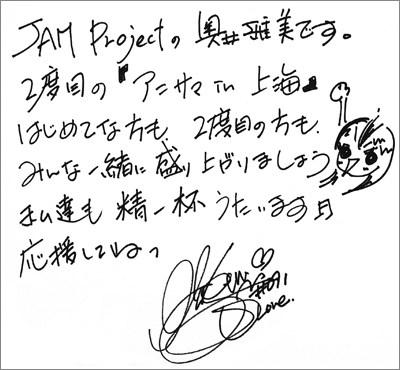 JAM Projectの 奥井雅美です。
2度目の『アニサマ in 上海』
はじめてな方も、2度目の方も、
みんな一緒に盛り上がりましょう
私達も 精一杯 うたいます
応援してねっ
Love.